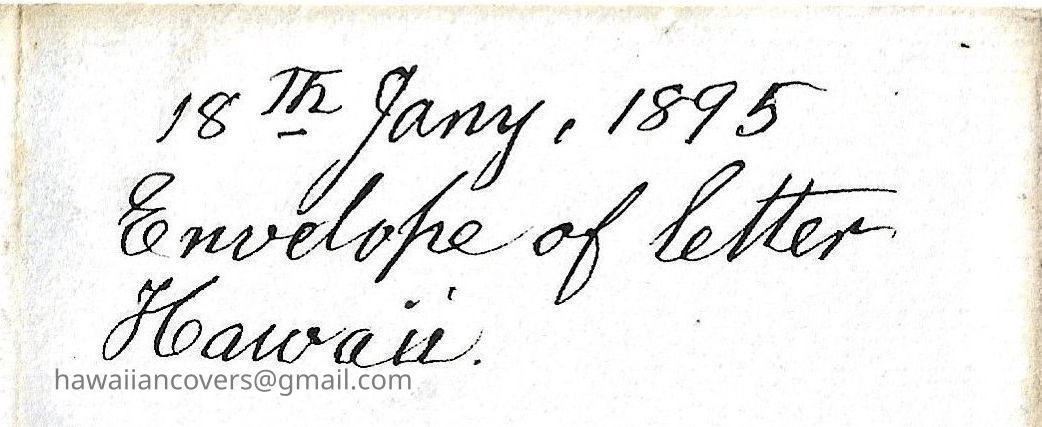 18Th Jany, 1895
Envelope of letter
Hawaii.
hawaiiancovers@gmail.com